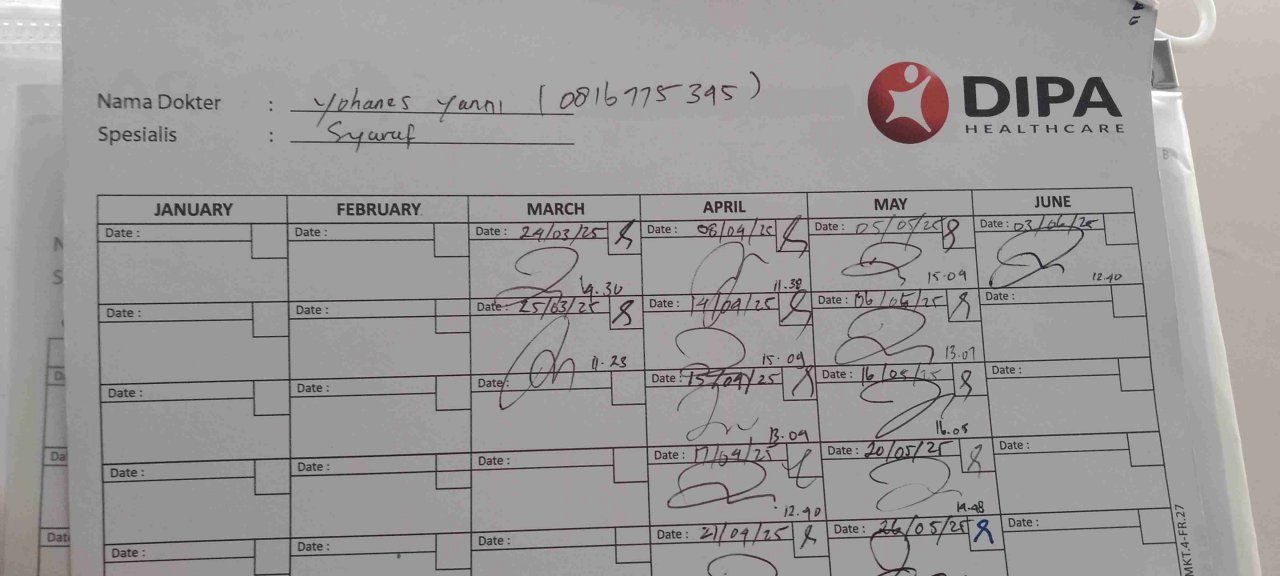 Nama Dokter : Yohanes Yanni (0816775395)
Spesialis : Syaraf
DIPA
HEALTHCARE
JANUARY FEBRUARY MARCH APRIL MAY JUNE
Date : Date : Date : 24/03/25 Date : 08/04/25 Date : 05/05/25 Date : 03/06/25
14.30 11.38 15.09 12.40
Date : Date : Date : 25/03/25 Date : 14/04/25 Date : 06/05/25 Date :
11.23 15.09 13.07
Date : Date : Date : Date : 15/04/25 Date : 16/05/25 Date :
13.09 16.05
Date : Date : Date : Date : 17/04/25 Date : 20/05/25 Date :
12.40 14.48
Date : Date : Date : Date : 21/04/25 Date : 26/05/25 Date :
MKT.4-FR.27